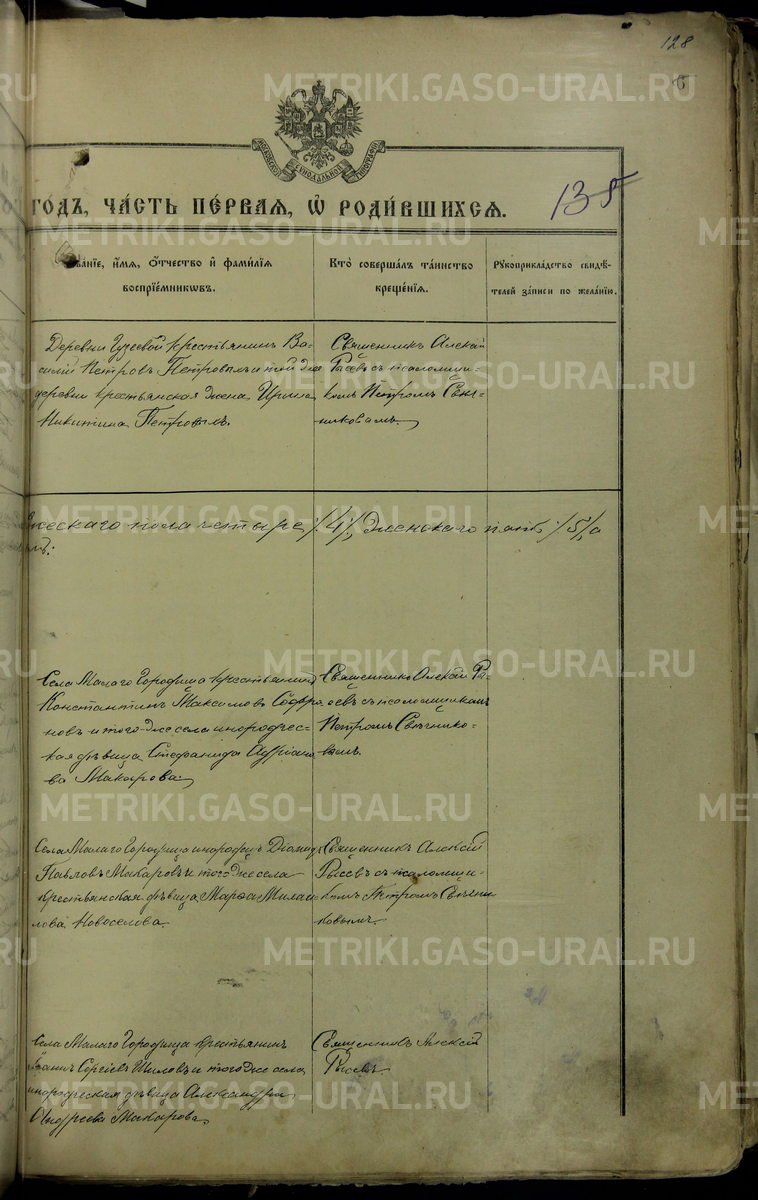 128
METRIKI.GASO-URAL.RU
МОСКОВСКОЙ СѴНОДАЛЬНОЙ ТИПОГРАФІИ
135
ГОДЪ, ЧАСТЬ ПЕРВАЯ, Ѡ РОДИВШИХСЯ.
Званіе, имя, отчество и фамилія
воспріемниковъ.
Кто совершалъ таинство
крещенія.
Рукоприкладство свидѣ-
телей записи по желанію.
METRIKI.GASO-URAL.RU
Деревни Гусевой крестьянинъ Ва-
силій Петровъ Петровыхъ и той же
деревни крестьянская жена Ирина
Никитина Петровыхъ.
Священникъ Алексій
Рысевъ съ псаломщи-
комъ Петромъ Свѣч-
никовымъ.
METRIKI.GASO-URAL.RU
ческаго пола четыре /4/, женскаго пять /5/, а
METRIKI.GASO-URAL.RU
Села Малаго Городища крестьянинъ
Константинъ Максимовъ Софро
новъ и того-же села инородчес-
кая дѣвица Стефанида Адріано
ва Макарова.
Священникъ Алексій Ры-
севъ съ псаломщикомъ
Петромъ Свѣчнико-
вымъ.
METRIKI.GASO-URAL.RU
Села Малаго Городища инородецъ Діомидъ
Павловъ Макаровъ и того же села
крестьянская дѣвица Марѳа Михаи
лова Новоселова.
Священникъ Алексій
Рысевъ съ псаломщи-
комъ Петромъ Свѣчни
ковымъ.
METRIKI.GASO-URAL.RU
Села Малаго Городища крестьянинъ
Іоаннъ Сергіевъ Шиловъ и того же села
инородческая дѣвица Александра
Андреева Макарова.
Священникъ Алексій
Рысевъ.
METRIKI.GASO-URAL.RU